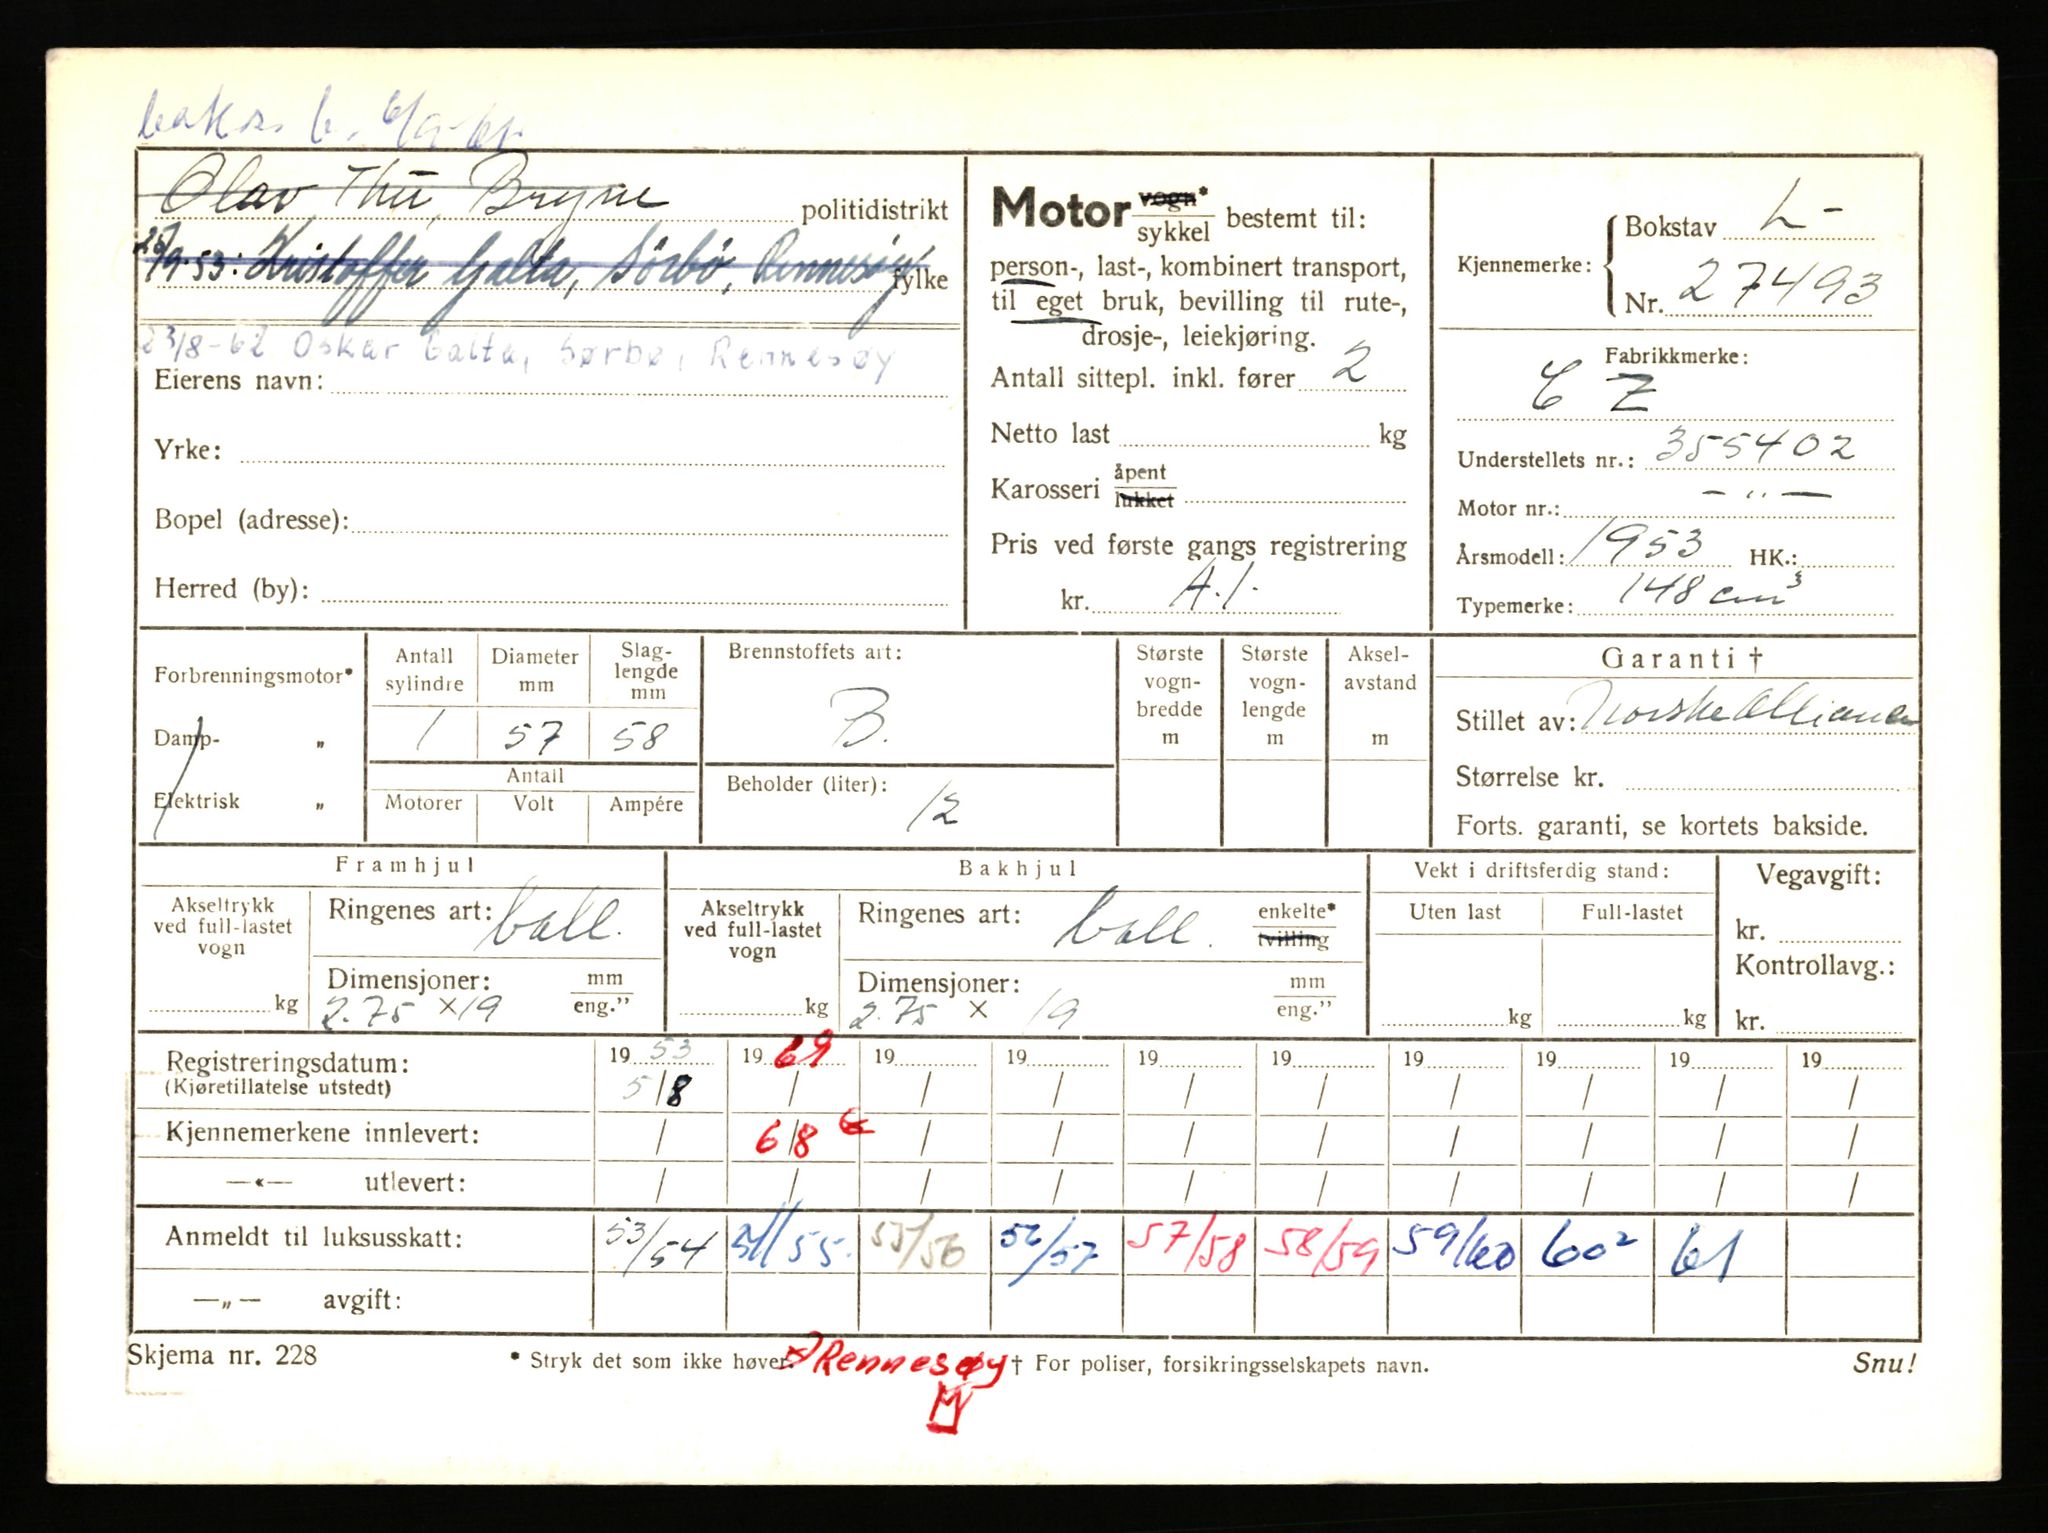 Olav Thu, Bryne politidistrikt
9.53: Kristoffer Galta, Sørbø, Rennesøy fylke
23/8-62 Oskar Galta, Sørbø, Rennesøy
Eierens navn:
Yrke:
Bopel (adresse):
Herred (by):
Motor vogn* sykkel bestemt til:
person-, last-, kombinert transport,
til eget bruk, bevilling til rute-,
drosje-, leiekjøring.
Antall sittepl. inkl. fører 2
Netto last kg
Karosseri åpent lukket
Pris ved første gangs registrering
kr. A.1.
Kjennemerke: Bokstav L-
Nr. 27493
Fabrikkmerke:
C Z
Understellets nr.: 355402
Motor nr.: — " —
Årsmodell: 1953 HK.:
Typemerke: 148 cm³
Forbrenningsmotor*
Damp- „
Elektrisk „
Antall sylindre 1
Diameter mm 57
Slag-lengde mm 58
Antall
Motorer Volt Ampére
Brennstoffets art:
B.
Beholder (liter):
12
Største vogn-bredde m
Største vogn-lengde m
Aksel-avstand m
Garanti †
Stillet av: Norske Alliance
Størrelse kr.
Forts. garanti, se kortets bakside.
Framhjul
Akseltrykk ved full-lastet vogn
kg
Ringenes art: ball.
Dimensjoner: mm eng.”
2.75 × 19
Bakhjul
Akseltrykk ved full-lastet vogn
kg
Ringenes art: ball. enkelte* tvilling
Dimensjoner: mm eng.”
2.75 × 19
Vekt i driftsferdig stand:
Uten last Full-lastet
kg kg
Vegavgift:
kr.
Kontrollavg.:
kr.
Registreringsdatum: 19 53 19 69 19 19 19 19 19 19 19 19
(Kjøretillatelse utstedt) 5/8 / / / / / / / / /
Kjennemerkene innlevert: / 6/8 / / / / / / / /
—«— utlevert: / / / / / / / / / /
Anmeldt til luksusskatt: 53/54 54/55. 55/56 56/57 57/58 58/59 59/60 60² 61
—„— avgift:
Skjema nr. 228 * Stryk det som ikke høver. Rennesøy † For poliser, forsikringsselskapets navn. Snu!
M